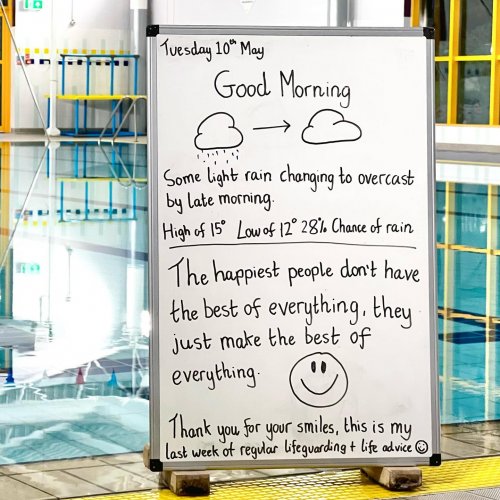 Tuesday 10th May
Good Morning
Some light rain changing to overcast
by late morning.
High of 15° Low of 12° 28% Chance of rain
The happiest people don't have
the best of everything, they
just make the best of
everything.
Thank you for your smiles, this is my
last week of regular lifeguarding + life advice ☺